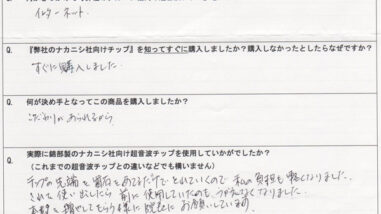 インターネット
Q. 『弊社のナカニシ社向けチップ』を知ってすぐに購入しましたか？購入しなかったとしたらなぜですか？
すぐに購入しました
Q. 何が決め手となってこの商品を購入しましたか？
こだわりが あられるから
Q. 実際に錦部製のナカニシ社向け超音波チップを使用していかがでしたか？
（これまでの超音波チップとの違いなどでも構いません）
チップの先端を歯石をあてるだけで とれていくので 私の負担も軽くなりました。
これを使い出したら 前に使用していたものも、つかえなくなりました。
本数を増やしてもらう様に 院長に お願いしています。